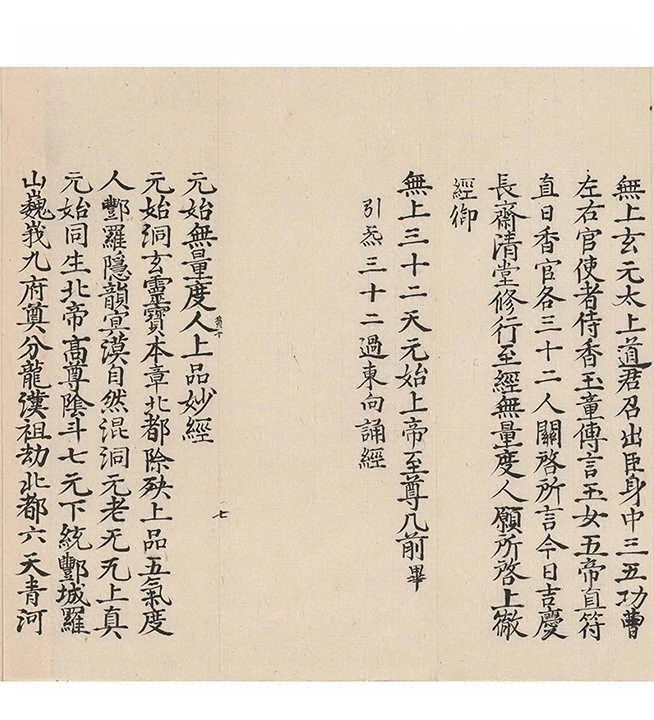 無上玄元太上道君召出臣身中三五功曹
左右官使者侍香玉童傳言玉女五帝直符
直日香官各三十二人關啓所言今日吉慶
長齋清堂修行至經無量度人願所啓上徹
經御
無上三十二天元始上帝至尊几前畢
引炁三十二過東向誦經
七
元始無量度人上品妙經
元始洞玄靈寶本章北都除殃上品五氣度
人酆羅隱韻冥漠自然混洞元老无无上真
元始同生北帝高尊陰斗七元下統酆城羅
山巍峩九府奠分龍漢祖劫北都六天青河